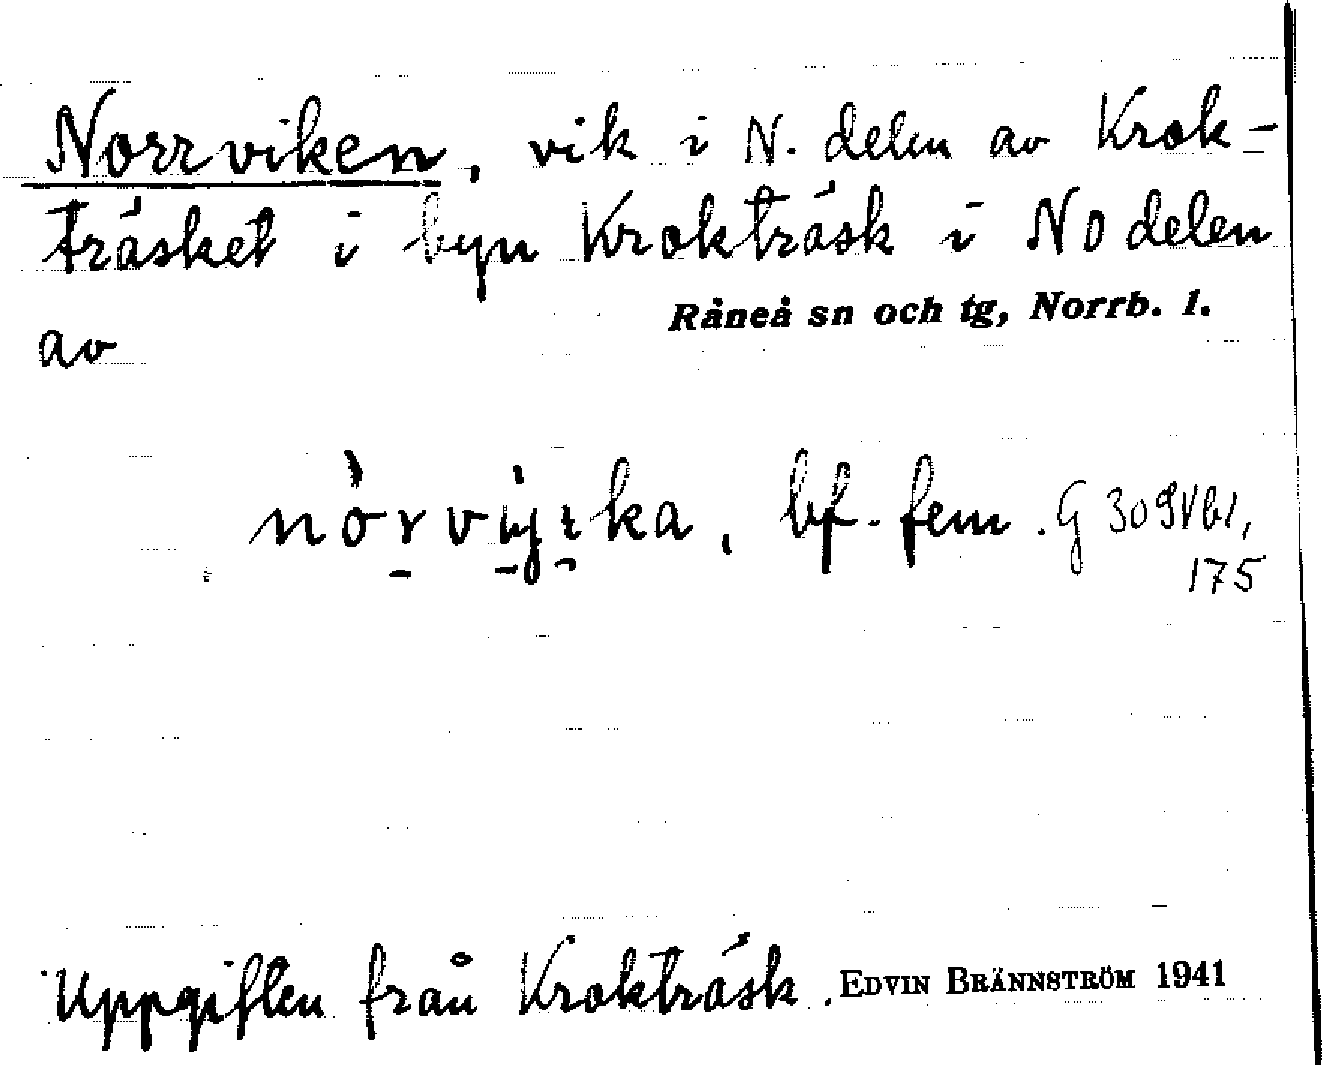 Norrviken, vik i N. delen av Krok-
träsket i byn Krokträsk i NO delen
av Råneå sn och tg, Norrb. l.
bf. fem. G 309 VI b1,
175
Uppgiften från Krokträsk. EDVIN BRÄNNSTRÖM 1941